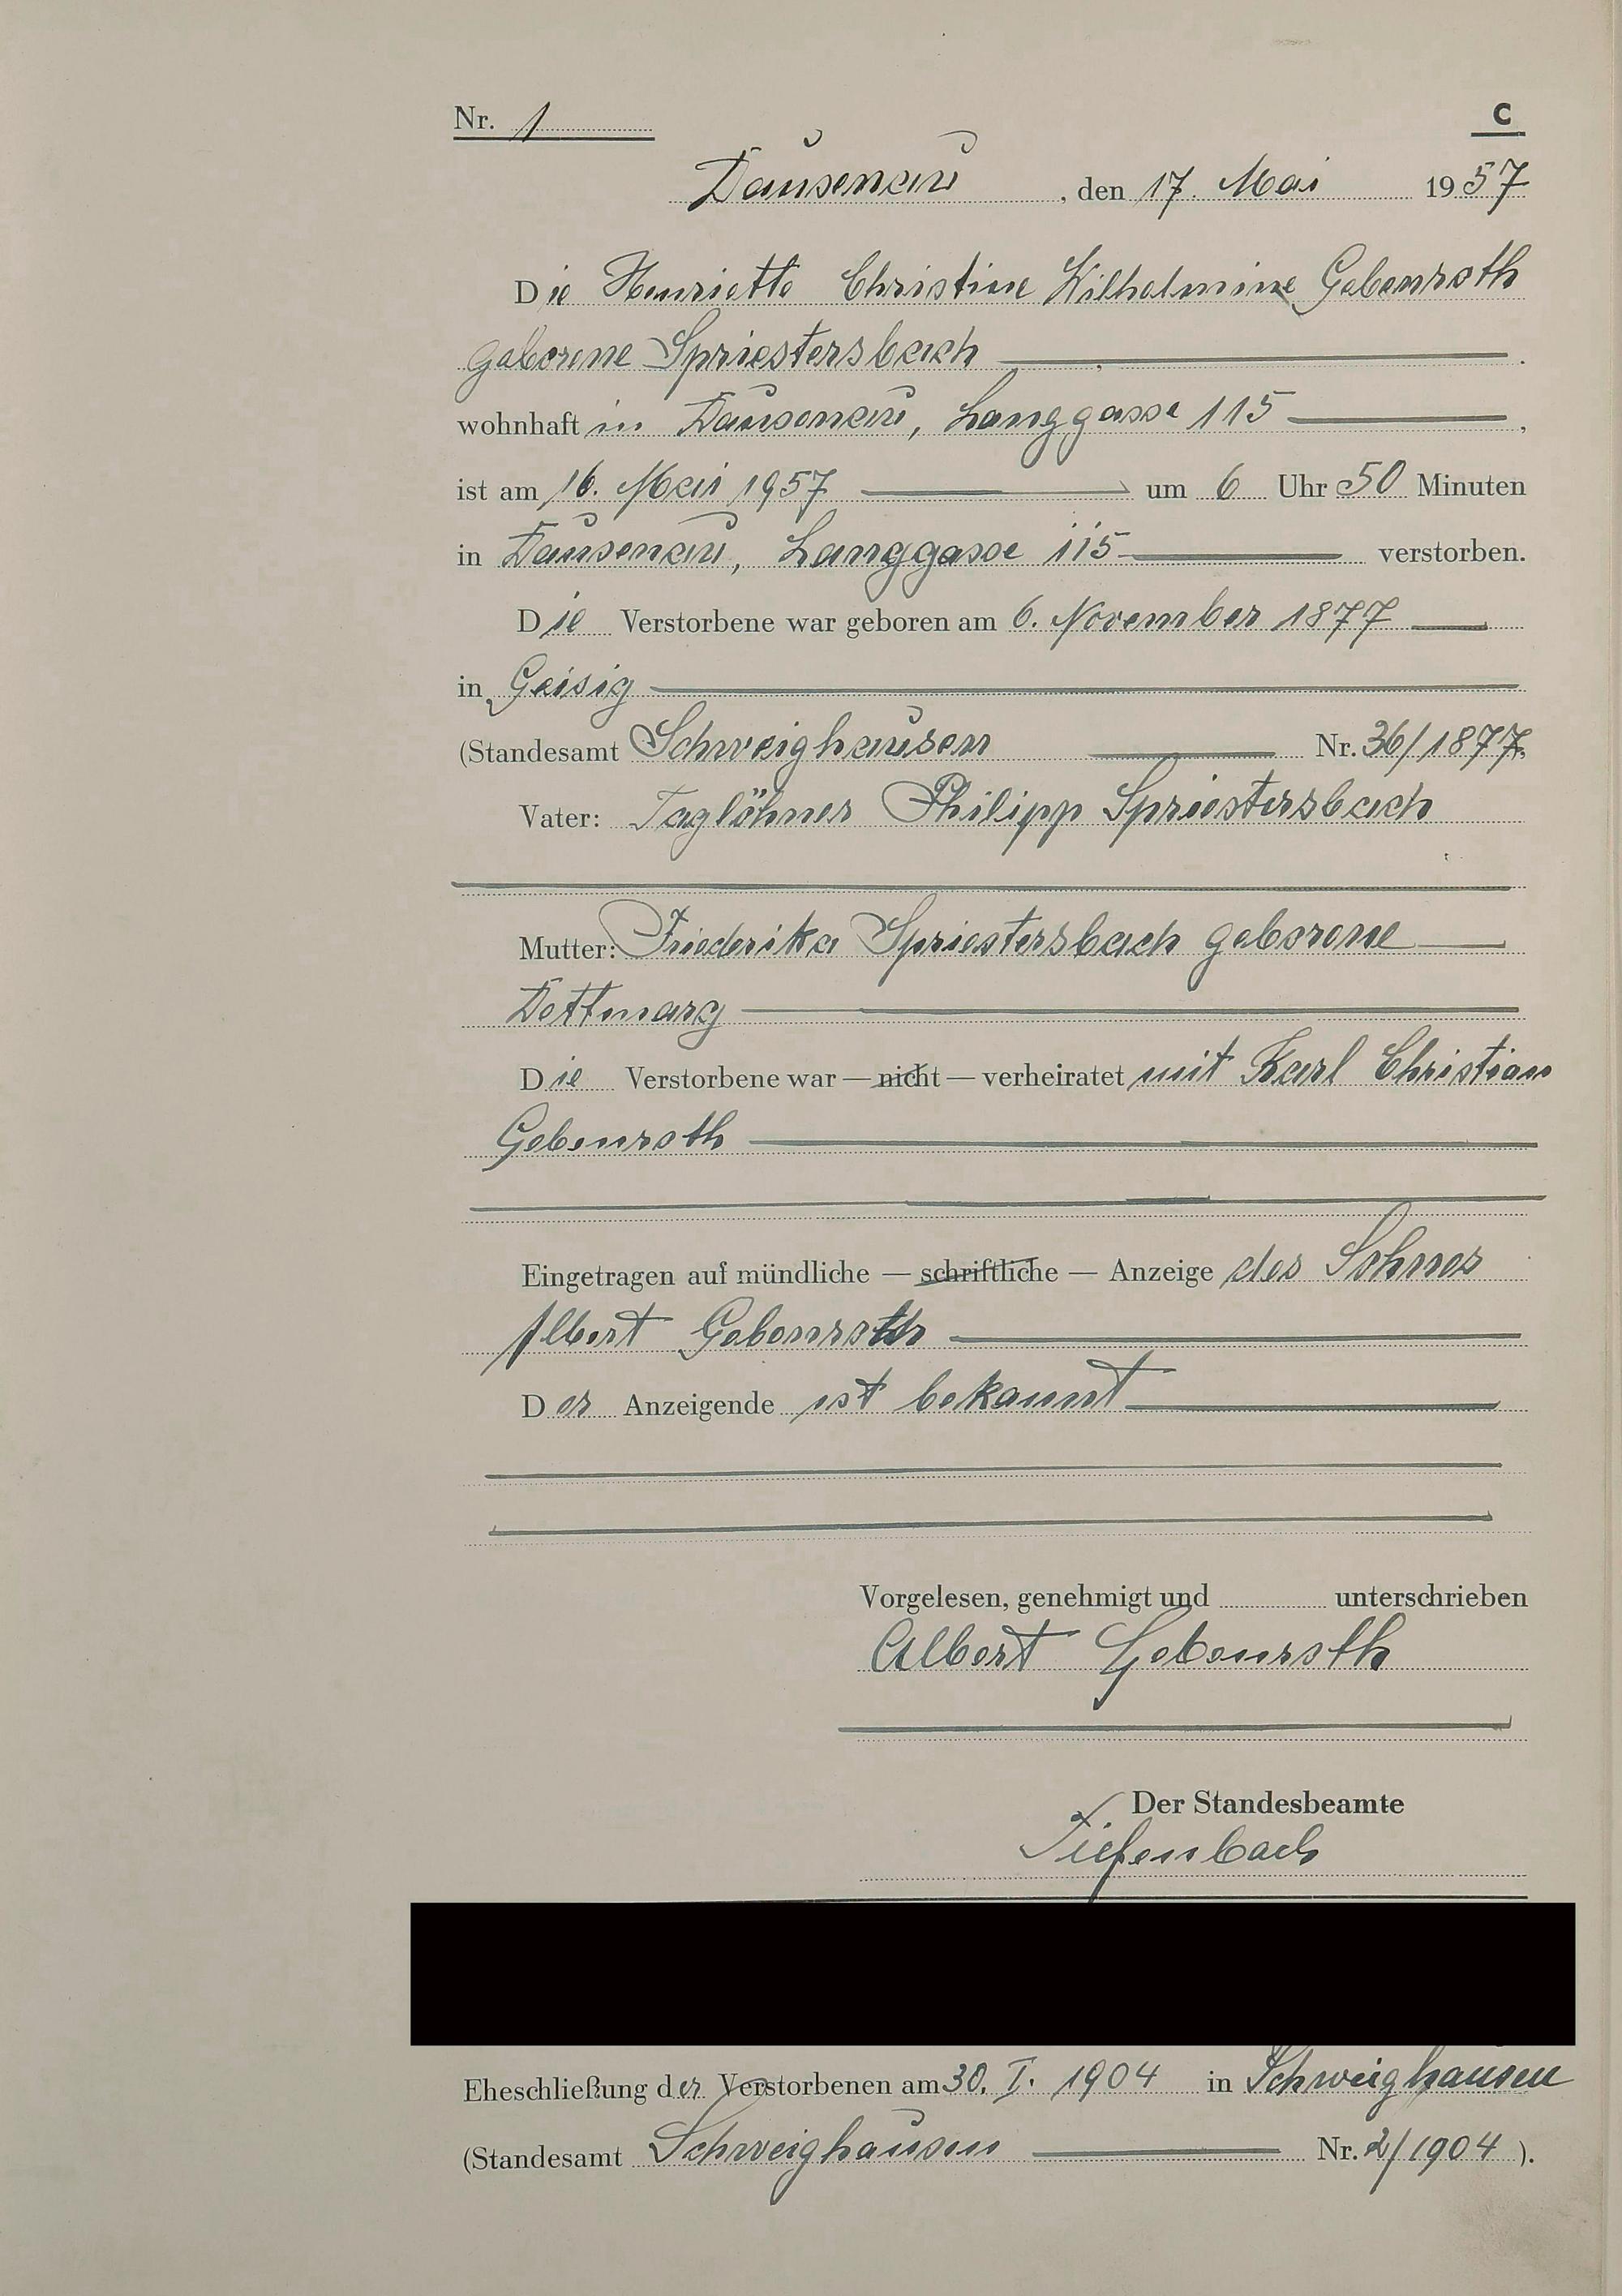 Nr. 1
C
Dausenau, den 17. Mai 1957
Die Henriette Christine Wilhelmine Gebenroth
geborene Spriestersbach
wohnhaft in Dausenau, Langgasse 115,
ist am 16. Mai 1957 um 6 Uhr 50 Minuten
in Dausenau, Langgasse 115 verstorben.
Die Verstorbene war geboren am 6. November 1877
in Geisig
(Standesamt Schweighausen Nr. 36/1877.
Vater: Taglöhner Philipp Spriestersbach
Mutter: Friederika Spriestersbach geborene
Dettmarg
Die Verstorbene war — nicht — verheiratet mit Karl Christian
Gebenroth
Eingetragen auf mündliche — schriftliche — Anzeige des Sohnes
Albert Gebenroth
Der Anzeigende ist bekannt
Vorgelesen, genehmigt und unterschrieben
Albert Gebenroth
Der Standesbeamte
Tiefenbach
Eheschließung der Verstorbenen am 30. I. 1904 in Schweighausen
(Standesamt Schweighausen Nr. 2/1904 ).